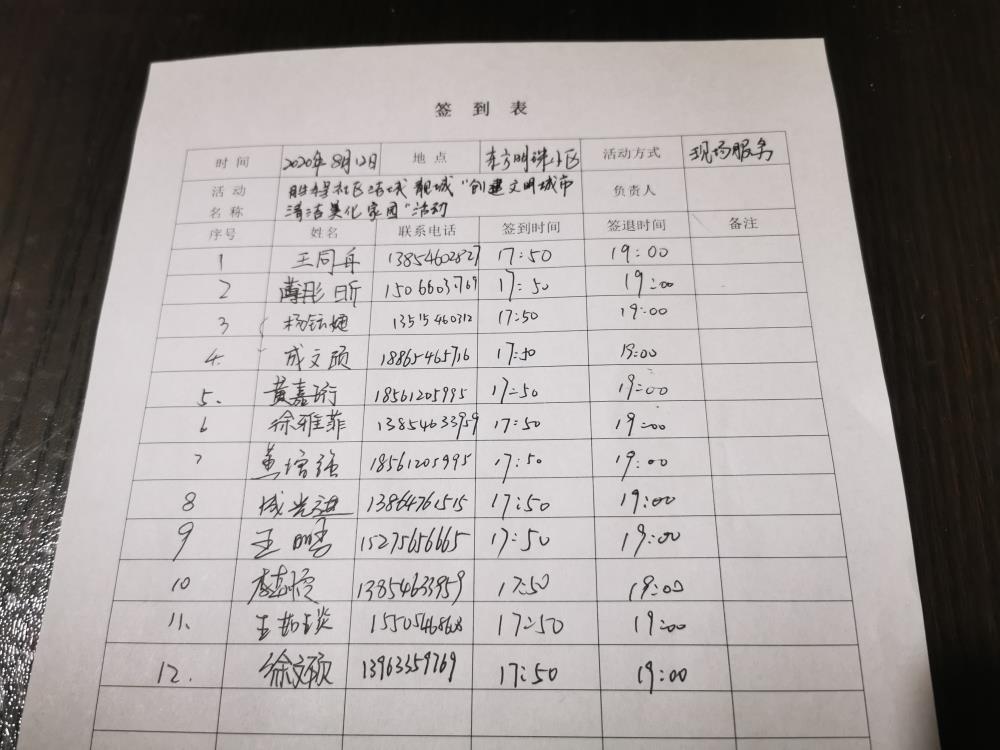 签到表
时间 2020年8月12日 地点 东方明珠小区 活动方式 现场服务
活动 社区 靓城“创建文明城市 负责人
名称 清洁美化家园”活动
序号 姓名 联系电话 签到时间 签退时间 备注
1 王同舟 13854602827 17:50 19:00
2 17:50 19:00
3 17:50 19:00
4. 成文颐 18865465716 17:50 19:00
5. 黄嘉珩 18561205995 17:50 19:00
6 徐雅菲 13854633959 17:50 19:00
7 黄增强 18561205995 17:50 19:00
8 13864761515 17:50 19:00
9 王 15275656665 17:50 19:00
10 13854633959 17:50 19:00
11. 17:50 19:00
12. 徐文硕 13963359769 17:50 19:00